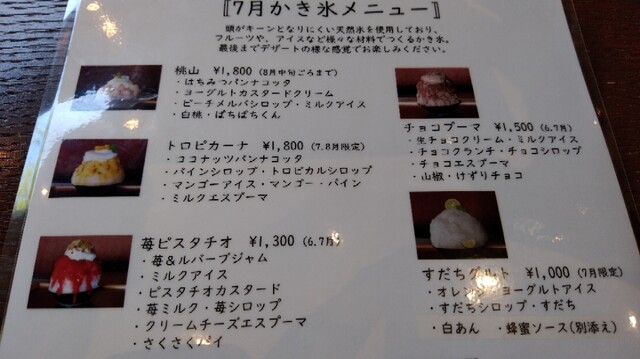 〚7月かき氷メニュー〛
頭がキーンとなりにくい天然氷を使用しており、
フルーツや、アイスなど様々な材料でつくるかき氷。
最後までデザートの様な感覚でお楽しみください。
桃山 ¥1,800 (8月中旬ごろまで)
・はちみつパンナコッタ
・ヨーグルトカスタードクリーム
・ピーチメルバシロップ・ミルクアイス
・白桃・ぱちぱちくん
トロピカーナ ¥1,800 (7.8月限定)
・ココナッツパンナコッタ
・パインシロップ・トロピカルシロップ
・マンゴーアイス・マンゴー・パイン
・ミルクエスプーマ
苺ピスタチオ ¥1,300 (6.7月)
・苺&ルバーブジャム
・ミルクアイス
・ピスタチオカスタード
・苺ミルク・苺シロップ
・クリームチーズエスプーマ
・さくさくパイ
チョコプーマ ¥1,500 (6.7月)
・生チョコクリーム・ミルクアイス
・チョコクランチ・チョコシロップ
・チョコエスプーマ
・山椒・けずりチョコ
すだちグルト ¥1,000 (7月限定)
・オレンジ・ヨーグルトアイス
・すだちシロップ・すだち
・白あん ・蜂蜜ソース(別添え)